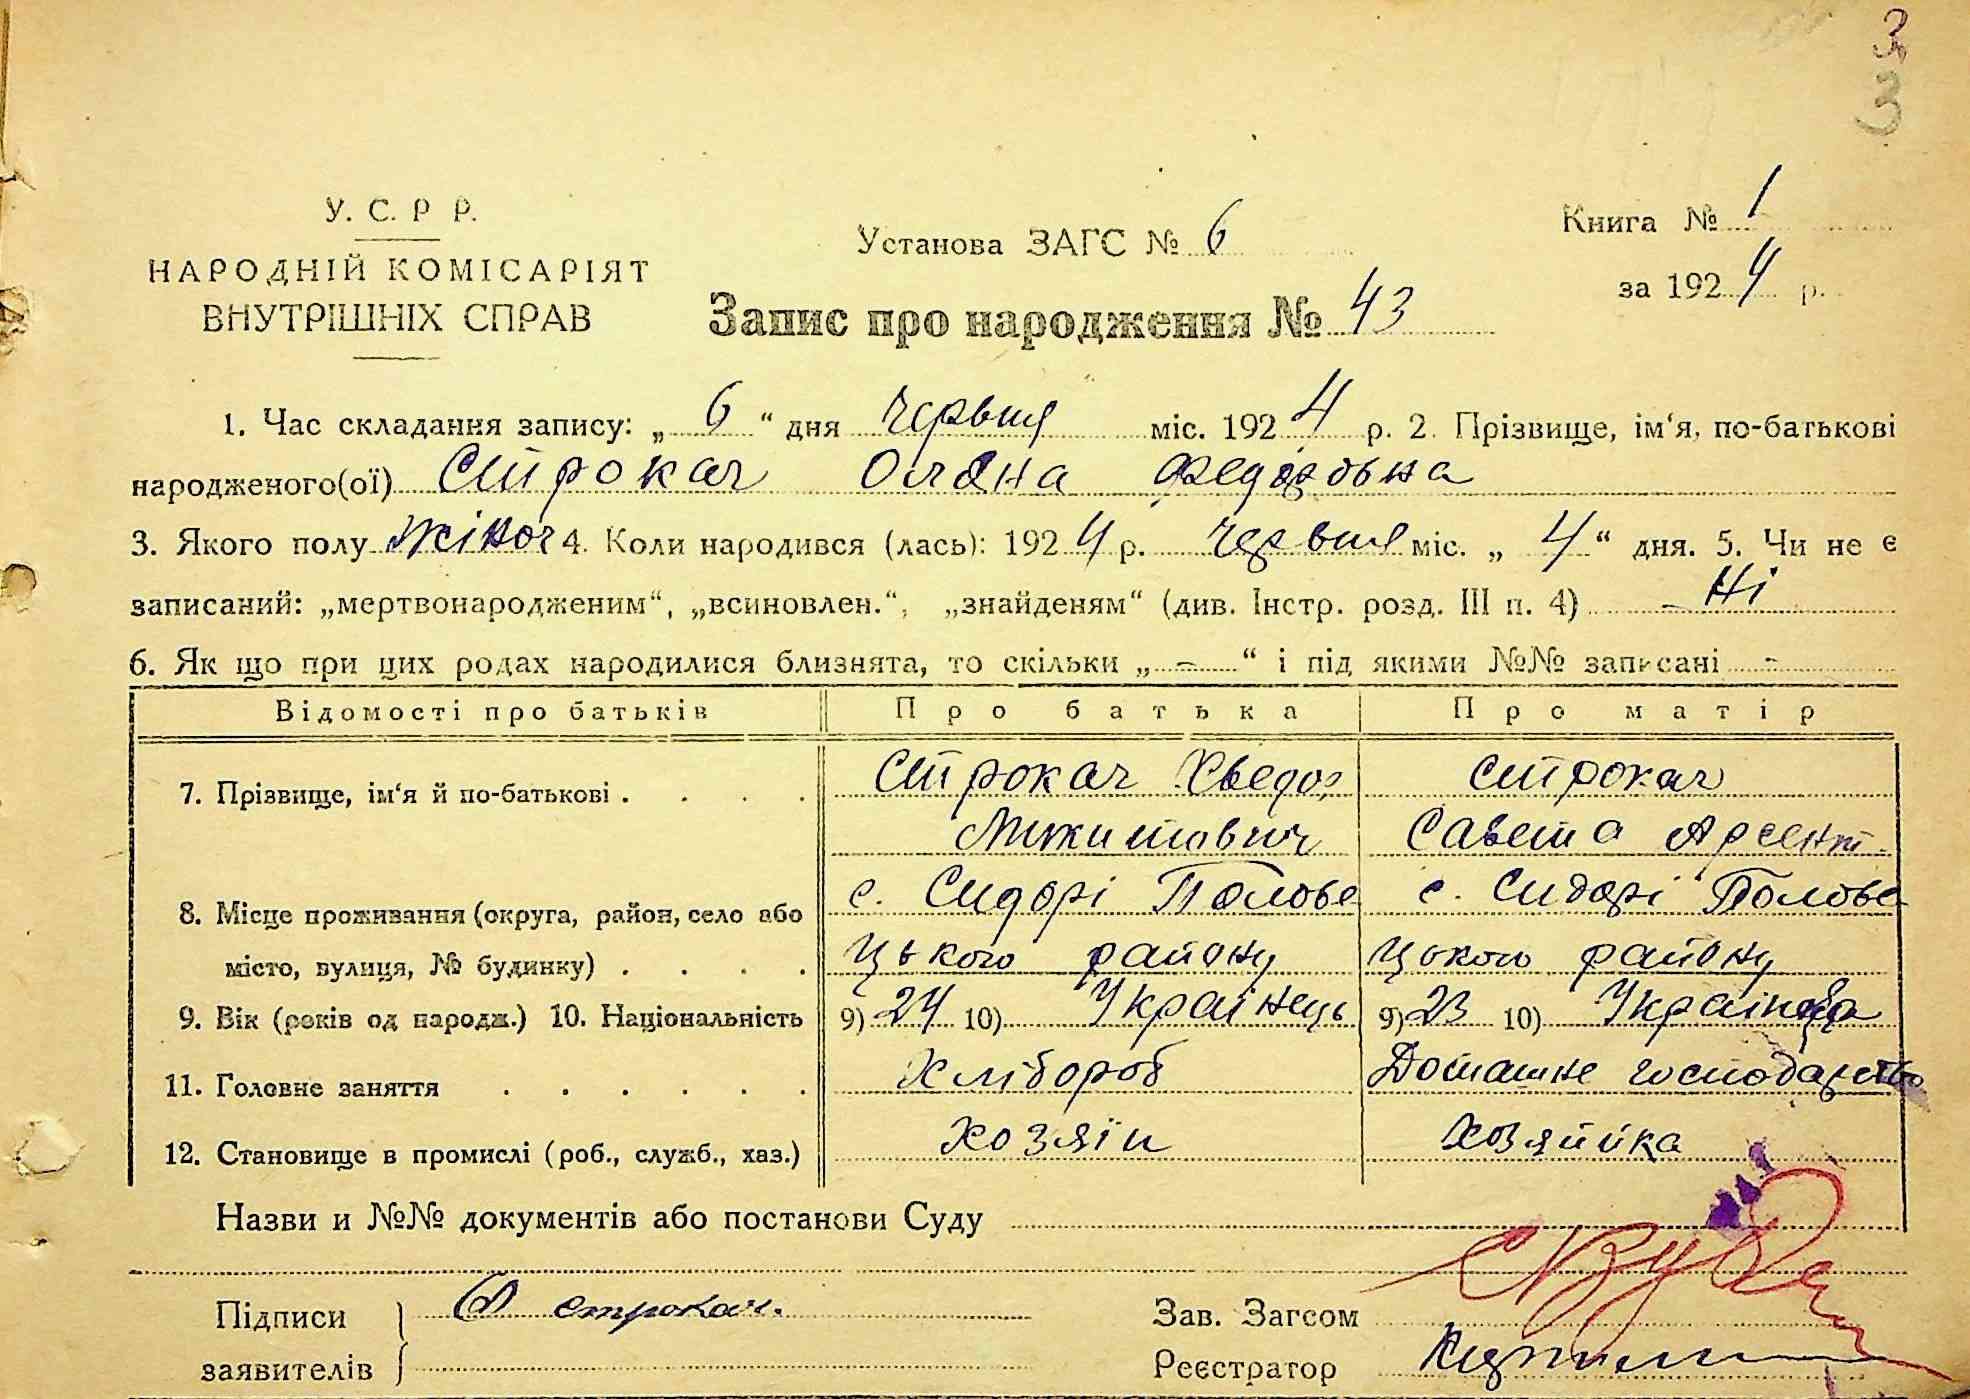 3
3
У. С. Р Р.
НАРОДНІЙ КОМІСАРІЯТ
ВНУТРІШНІХ СПРАВ
Установа ЗАГС № 6
Книга № 1
за 1924 р.
Запис про народження № 43
1. Час складання запису: „ 6 “ дня червня міс. 1924 р. 2. Прізвище, ім‘я, по-батькові
народженого(ої) Строкач Оляна Федоровна
3. Якого полу жіноч 4. Коли народився (лась): 1924 р. червня міс. „ 4 “ дня. 5. Чи не є
записаний: „мертвонародженим“, „всиновлен.“, „знайденям“ (див. Інстр. розд. III п. 4) – Ні
6. Як що при цих родах народилися близнята, то скільки „ – “ і під якими №№ записані -
Відомості про батьків Про батька Про матір
7. Прізвище, ім‘я й по-батькові . . . . Строкач Хведор Строкач
Микитович Савета Арсент.
8. Місце проживання (округа, район, село або с. Сидорі Полове с. Сидорі Полове
місто, вулиця, № будинку) . . . . цького району цького району
9. Вік (років од народж.) 10. Національність 9) 24 10) Українець 9) 23 10) Українка
11. Головне заняття . . . . . . Хлібороб Домашне господарство
12. Становище в промислі (роб., служб., хаз.) хозяїн хозяйка
Назви и №№ документів або постанови Суду
Підписи Ф Строкач. Зав. Загсом
заявителів Реєстратор